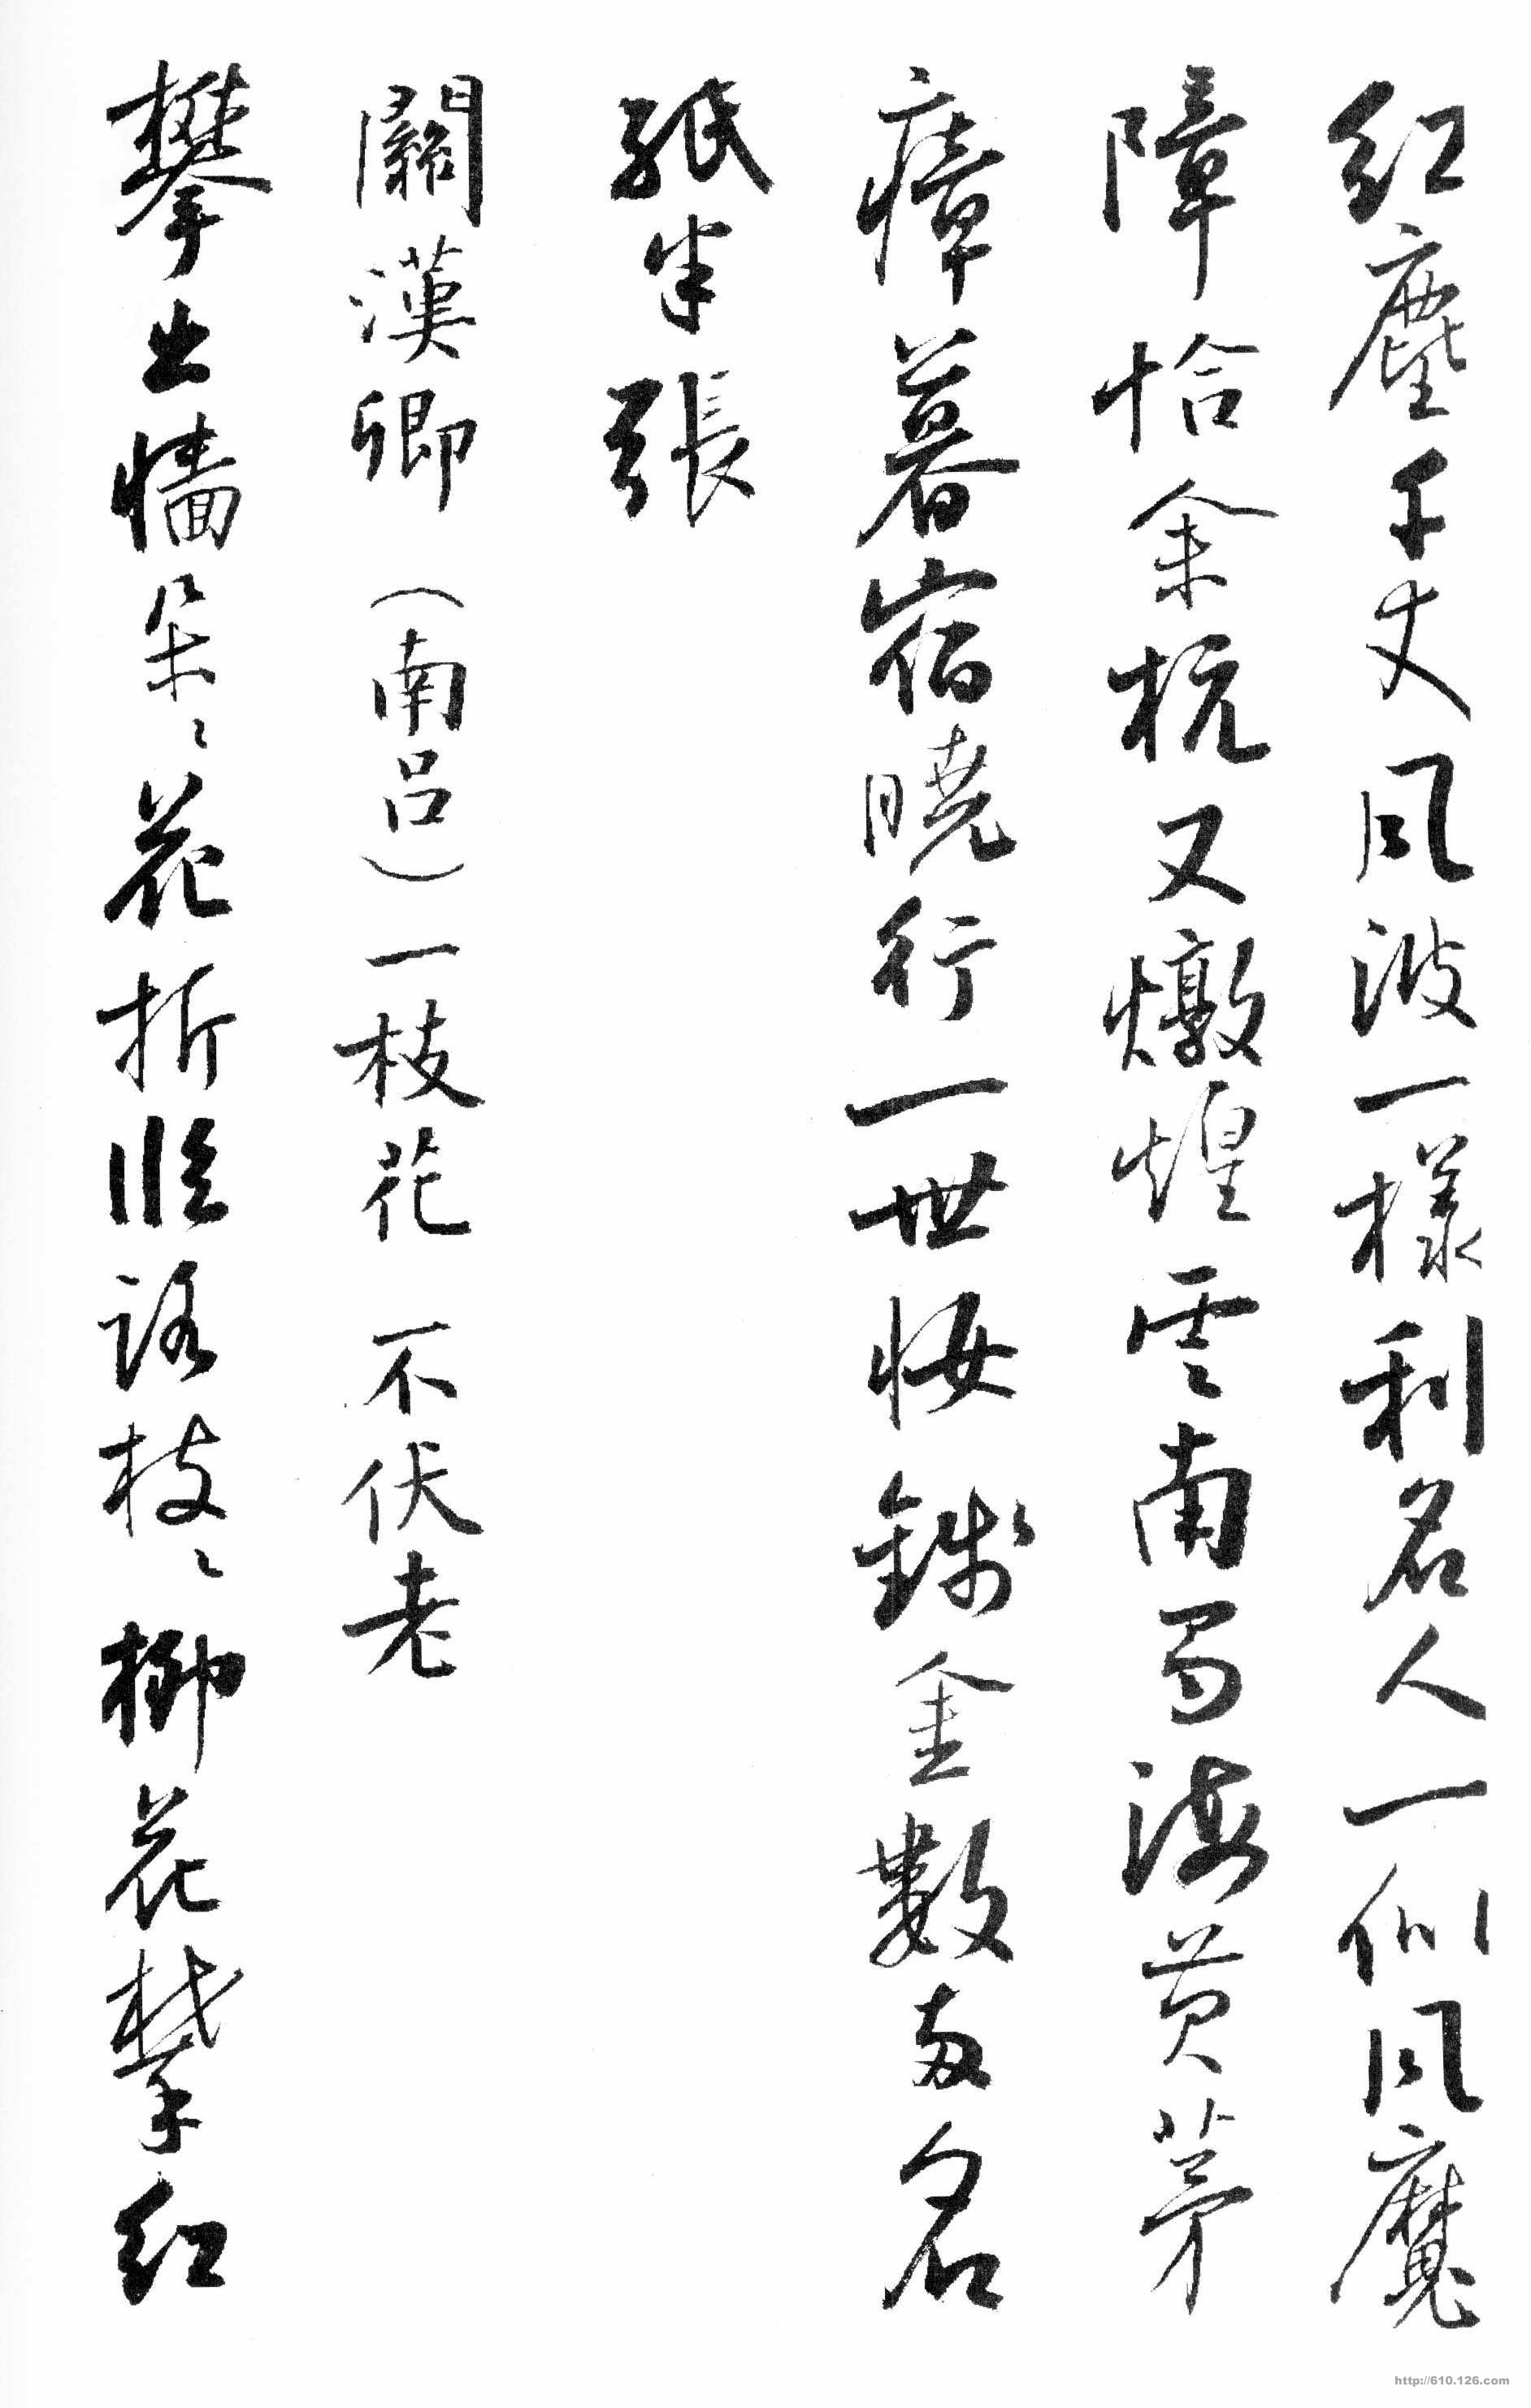 紅塵千丈風波一樣利名人一似風魔
障恰余杭又燉煌雲南蜀海黄茅
瘴暮宿曉行一世忙錢金數兩名
紙半張
關漢卿（南呂）一枝花 不伏老
攀出牆朵〻花折臨路枝〻柳花攀紅
http://610.126.com